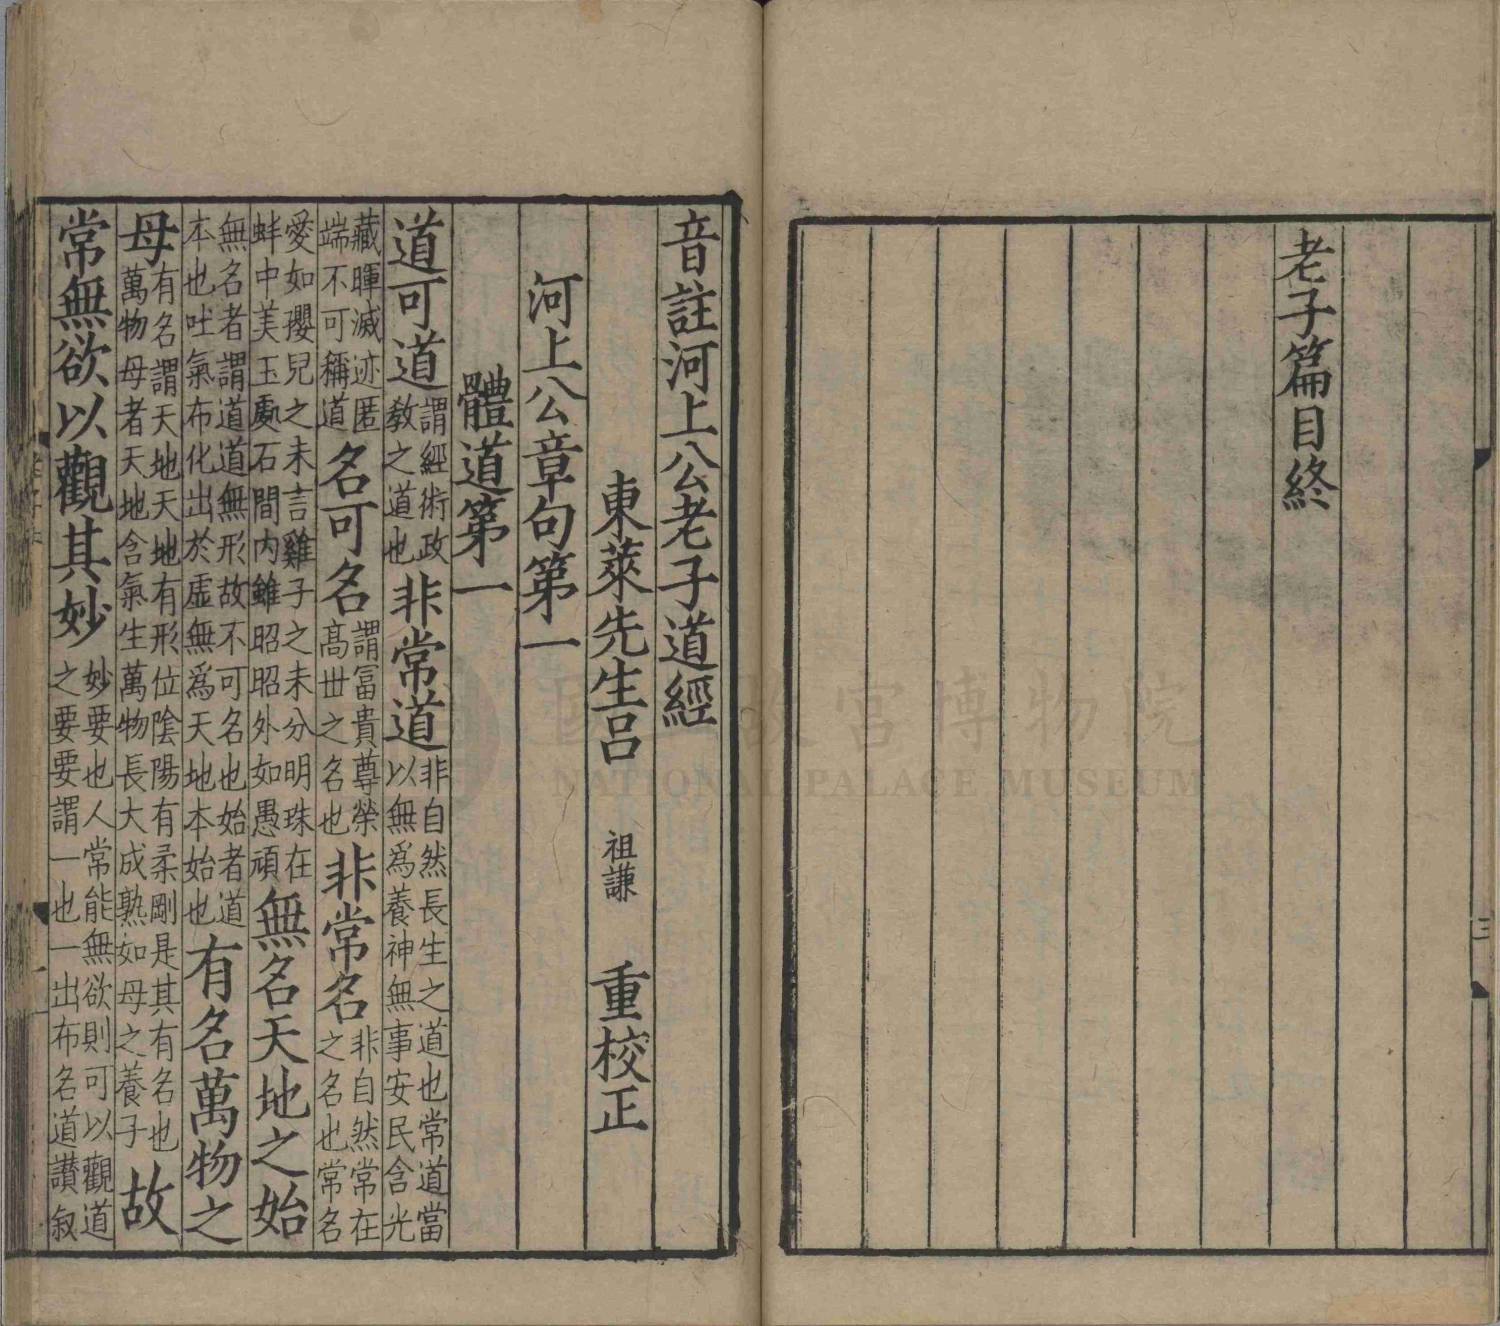 老子篇目終
三
音註河上公老子道經
東萊先生呂 祖謙 重校正
河上公章句第一
體道第一
道可道謂經術政教之道也非常道非自然長生之道也常道當以無為養神無事安民含光
藏暉滅迹匿端不可稱道名可名謂冨貴尊榮高世之名也非常名非自然常在之名也常名
愛如瓔兒之未言雞子之未分明珠在蚌中美玉處石間內雖昭昭外如愚頑無名天地之始
無名者謂道道無形故不可名也始者道本也吐氣布化出於虛無爲天地本始也有名萬物之
母有名謂天地天地有形位陰陽有柔剛是其有名也萬物母者天地含氣生萬物長大成熟如母之養子故
常無欲以觀其妙妙要也人常能無欲則可以觀道之要要謂一也一出布名道讃叙
國立故宮博物院
NATIONAL PALACE MUSEUM